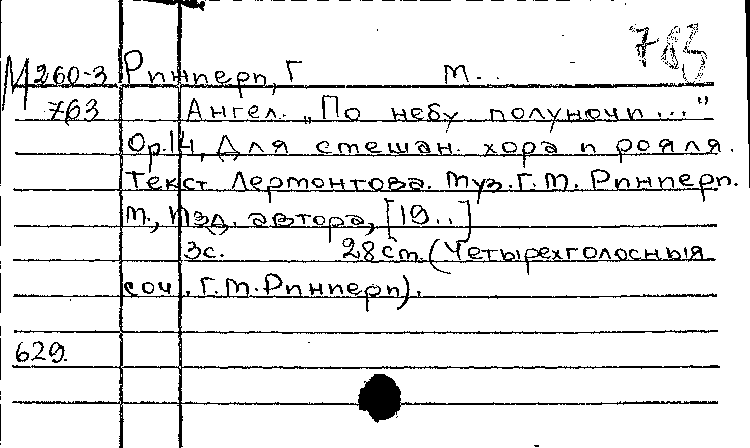 783
М 260-3 Риппери, Г М..
763 Ангел. „По небу полуночи..."
Ор.14, Для смешан. хора и рояля.
Текст Лермонтова. Муз. Г.М. Риппери.
М., Изд. автора, [19..]
3с. 28см. (Четырехголосныя
соч. Г.М. Риппери).
629.